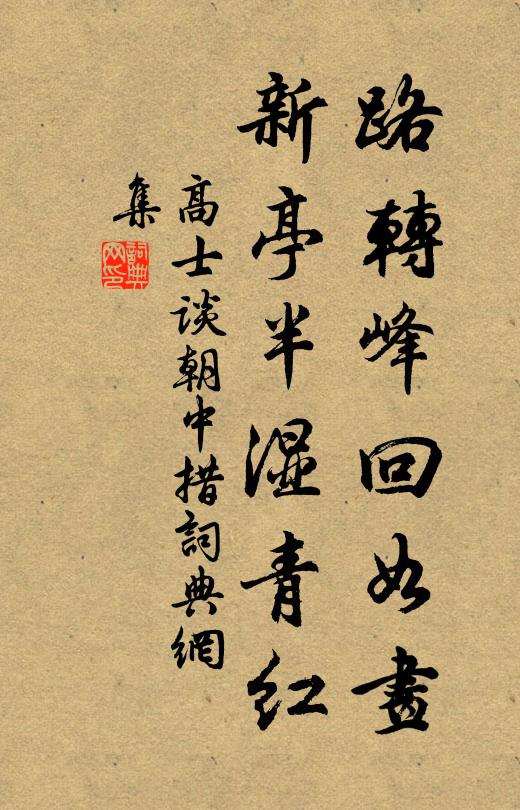 路轉峰回如畫
新亭半濕青紅
高士談朝中措詞典網
集
詞典網印